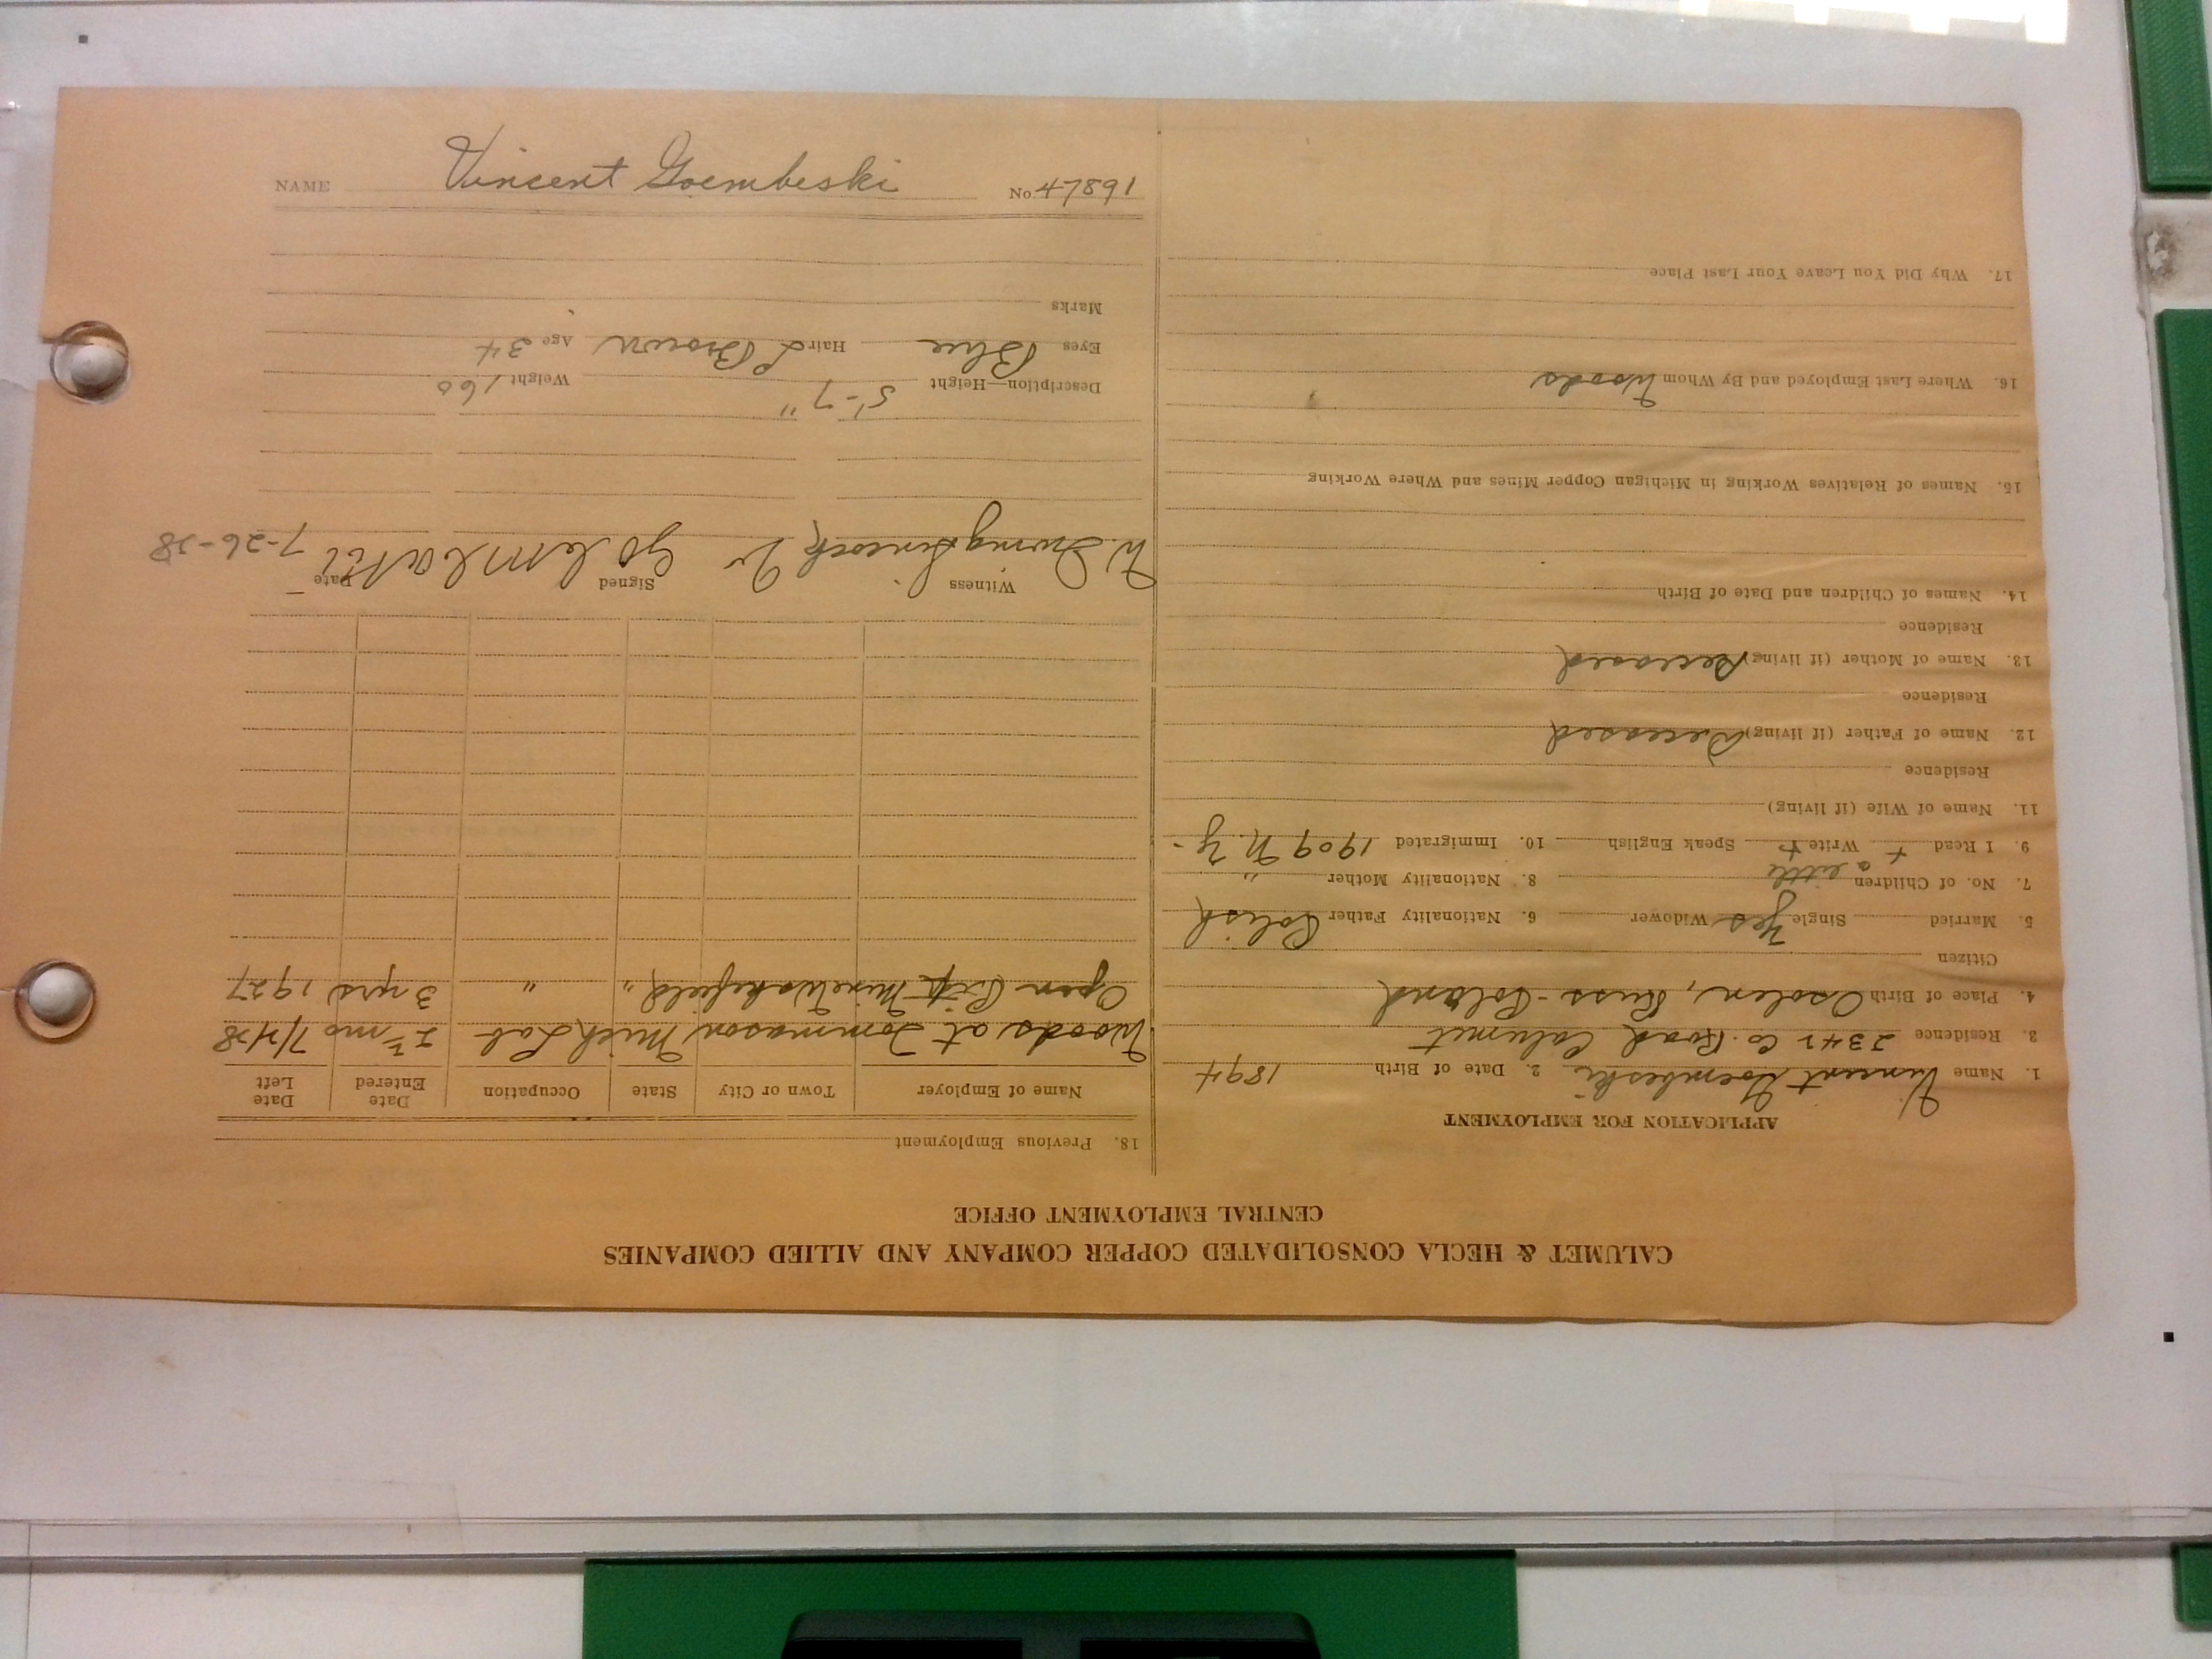 NAME Vincent Goembeski No. 47891
CALUMET & HECLA CONSOLIDATED COPPER COMPANY AND ALLIED COMPANIES
CENTRAL EMPLOYMENT OFFICE
APPLICATION FOR EMPLOYMENT
1. Name Vincent Goembeski 2. Date of Birth 1894
3. Residence 2342 Co. Road Calumet
4. Place of Birth Osolen, Russ-Poland
Citizen
5. Married Single Yes Widower 6. Nationality Father Polish
7. No. of Children 8. Nationality Mother "
a little
9. I Read + Write + Speak English 10. Immigrated 1909 N.Y.
11. Name of Wife (if living)
Residence
12. Name of Father (if living) Deceased
Residence
13. Name of Mother (if living) Deceased
Residence
14. Names of Children and Date of Birth
15. Names of Relatives Working in Michigan Copper Mines and Where Working
16. Where Last Employed and By Whom Woods
17. Why Did You Leave Your Last Place
18. Previous Employment
Name of Employer Town or City State Occupation Date Entered Date Left
Woods at Tommason Mich Lab mo 7/4/28
Open Pit Mine Wakefield " " 3 yrs 1927
Witness Signed Date 7-26-28
Description—Height 5'-7" Weight 160
Eyes Blue Hair L Brown Age 34
Marks